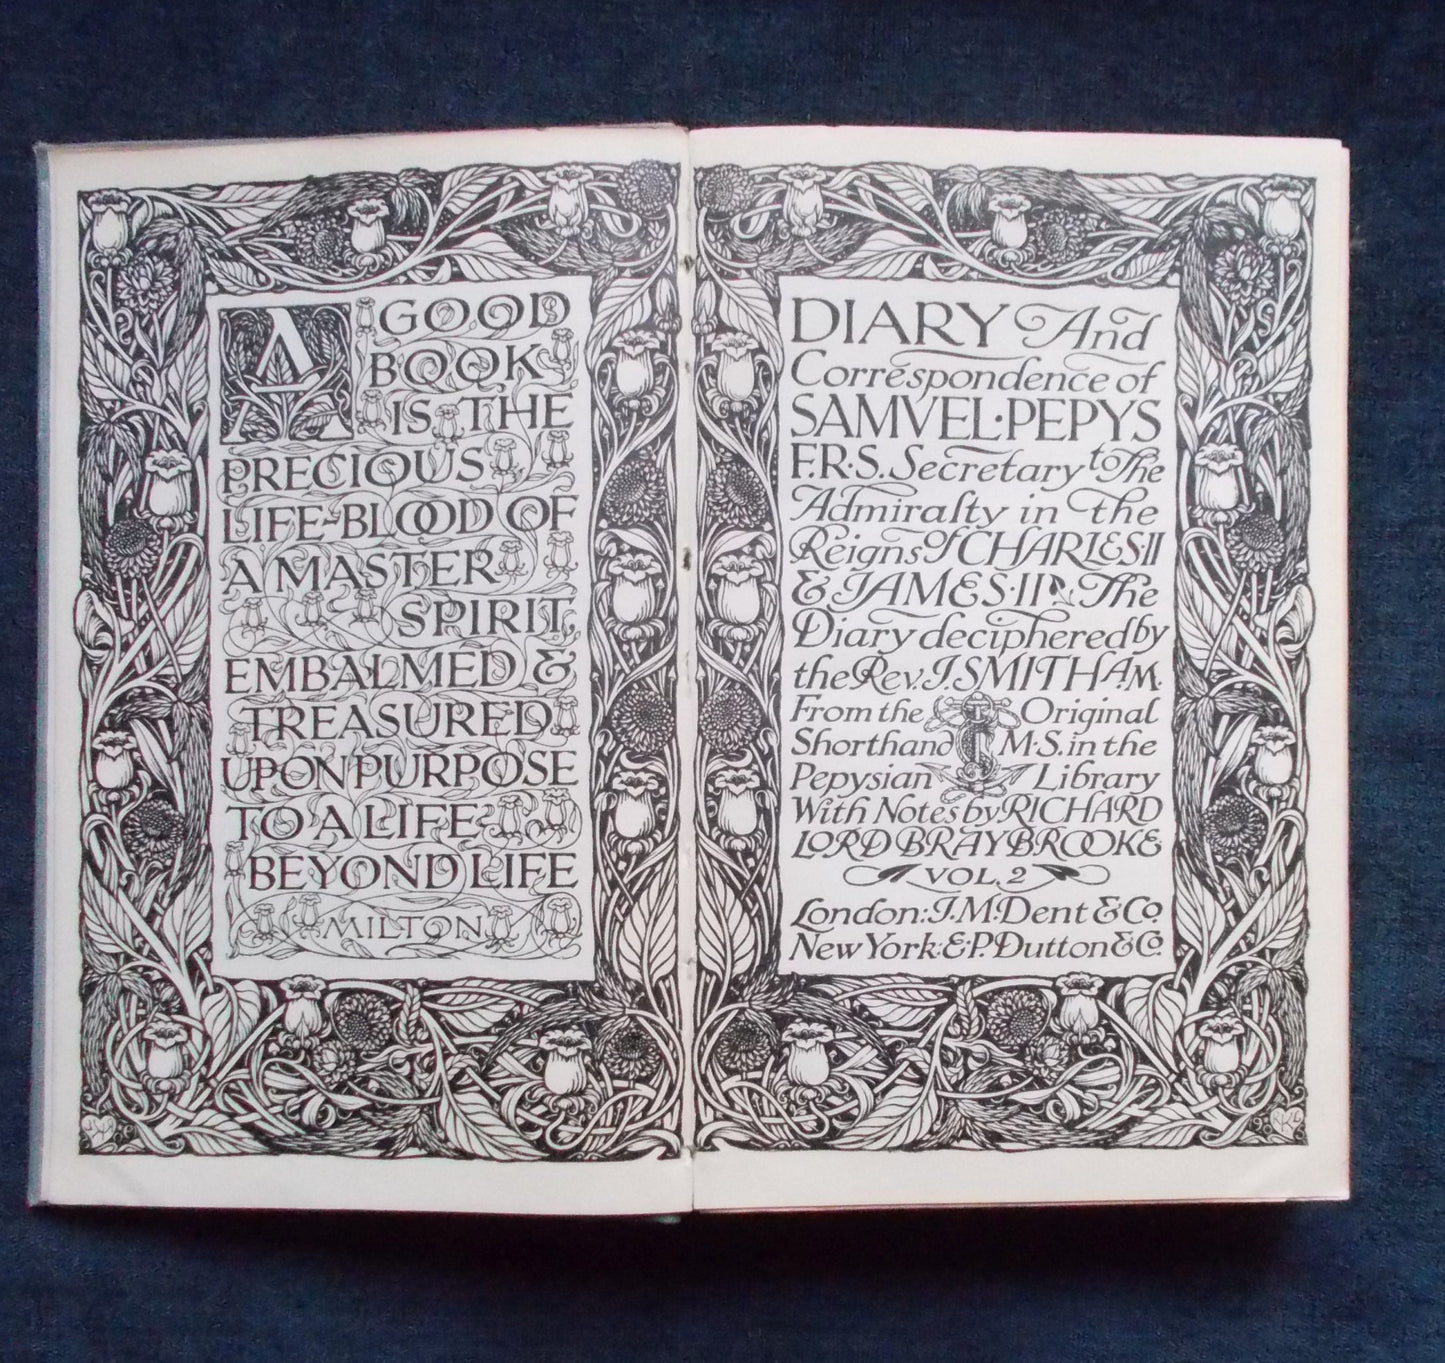 A GOOD
BOOK
IS THE
PRECIOUS
LIFE-BLOOD OF
A MASTER
SPIRIT,
EMBALMED &
TREASURED
UPON PURPOSE
TO A LIFE
BEYOND LIFE
MILTON
DIARY And
Correspondence of
SAMVEL·PEPYS
F.R.S. Secretary to The
Admiralty in the
Reigns of CHARLES·II
& JAMES·II The
Diary deciphered by
the Rev. J. SMITH A.M.
From the Original
Shorthand M·S. in the
Pepysian Library
With Notes by RICHARD
LORD BRAYBROOKE
VOL. 2
London: J. M. Dent & Co.
New York: E·P. Dutton & Co.